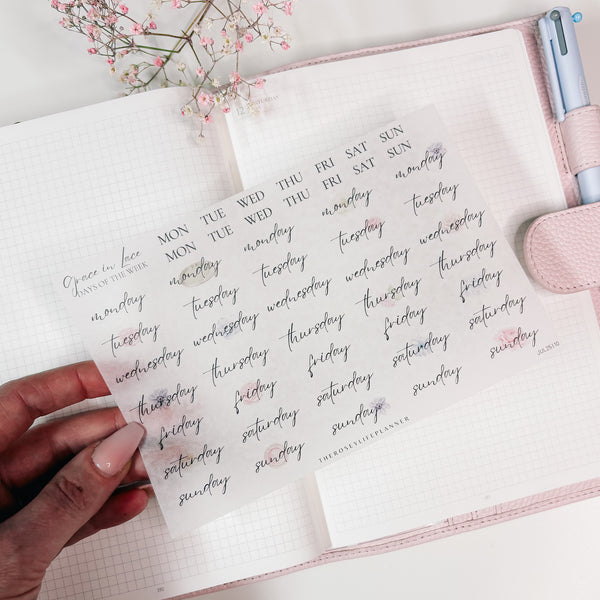 Grace in Lace
DAYS OF THE WEEK
MON TUE WED THU FRI SAT SUN
MON TUE WED THU FRI SAT SUN
monday monday monday monday monday
tuesday tuesday tuesday tuesday tuesday
wednesday wednesday wednesday wednesday wednesday
thursday thursday thursday thursday thursday
friday friday friday friday friday
saturday saturday saturday saturday saturday
sunday sunday sunday sunday sunday
THEROSEYLIFEPLANNER